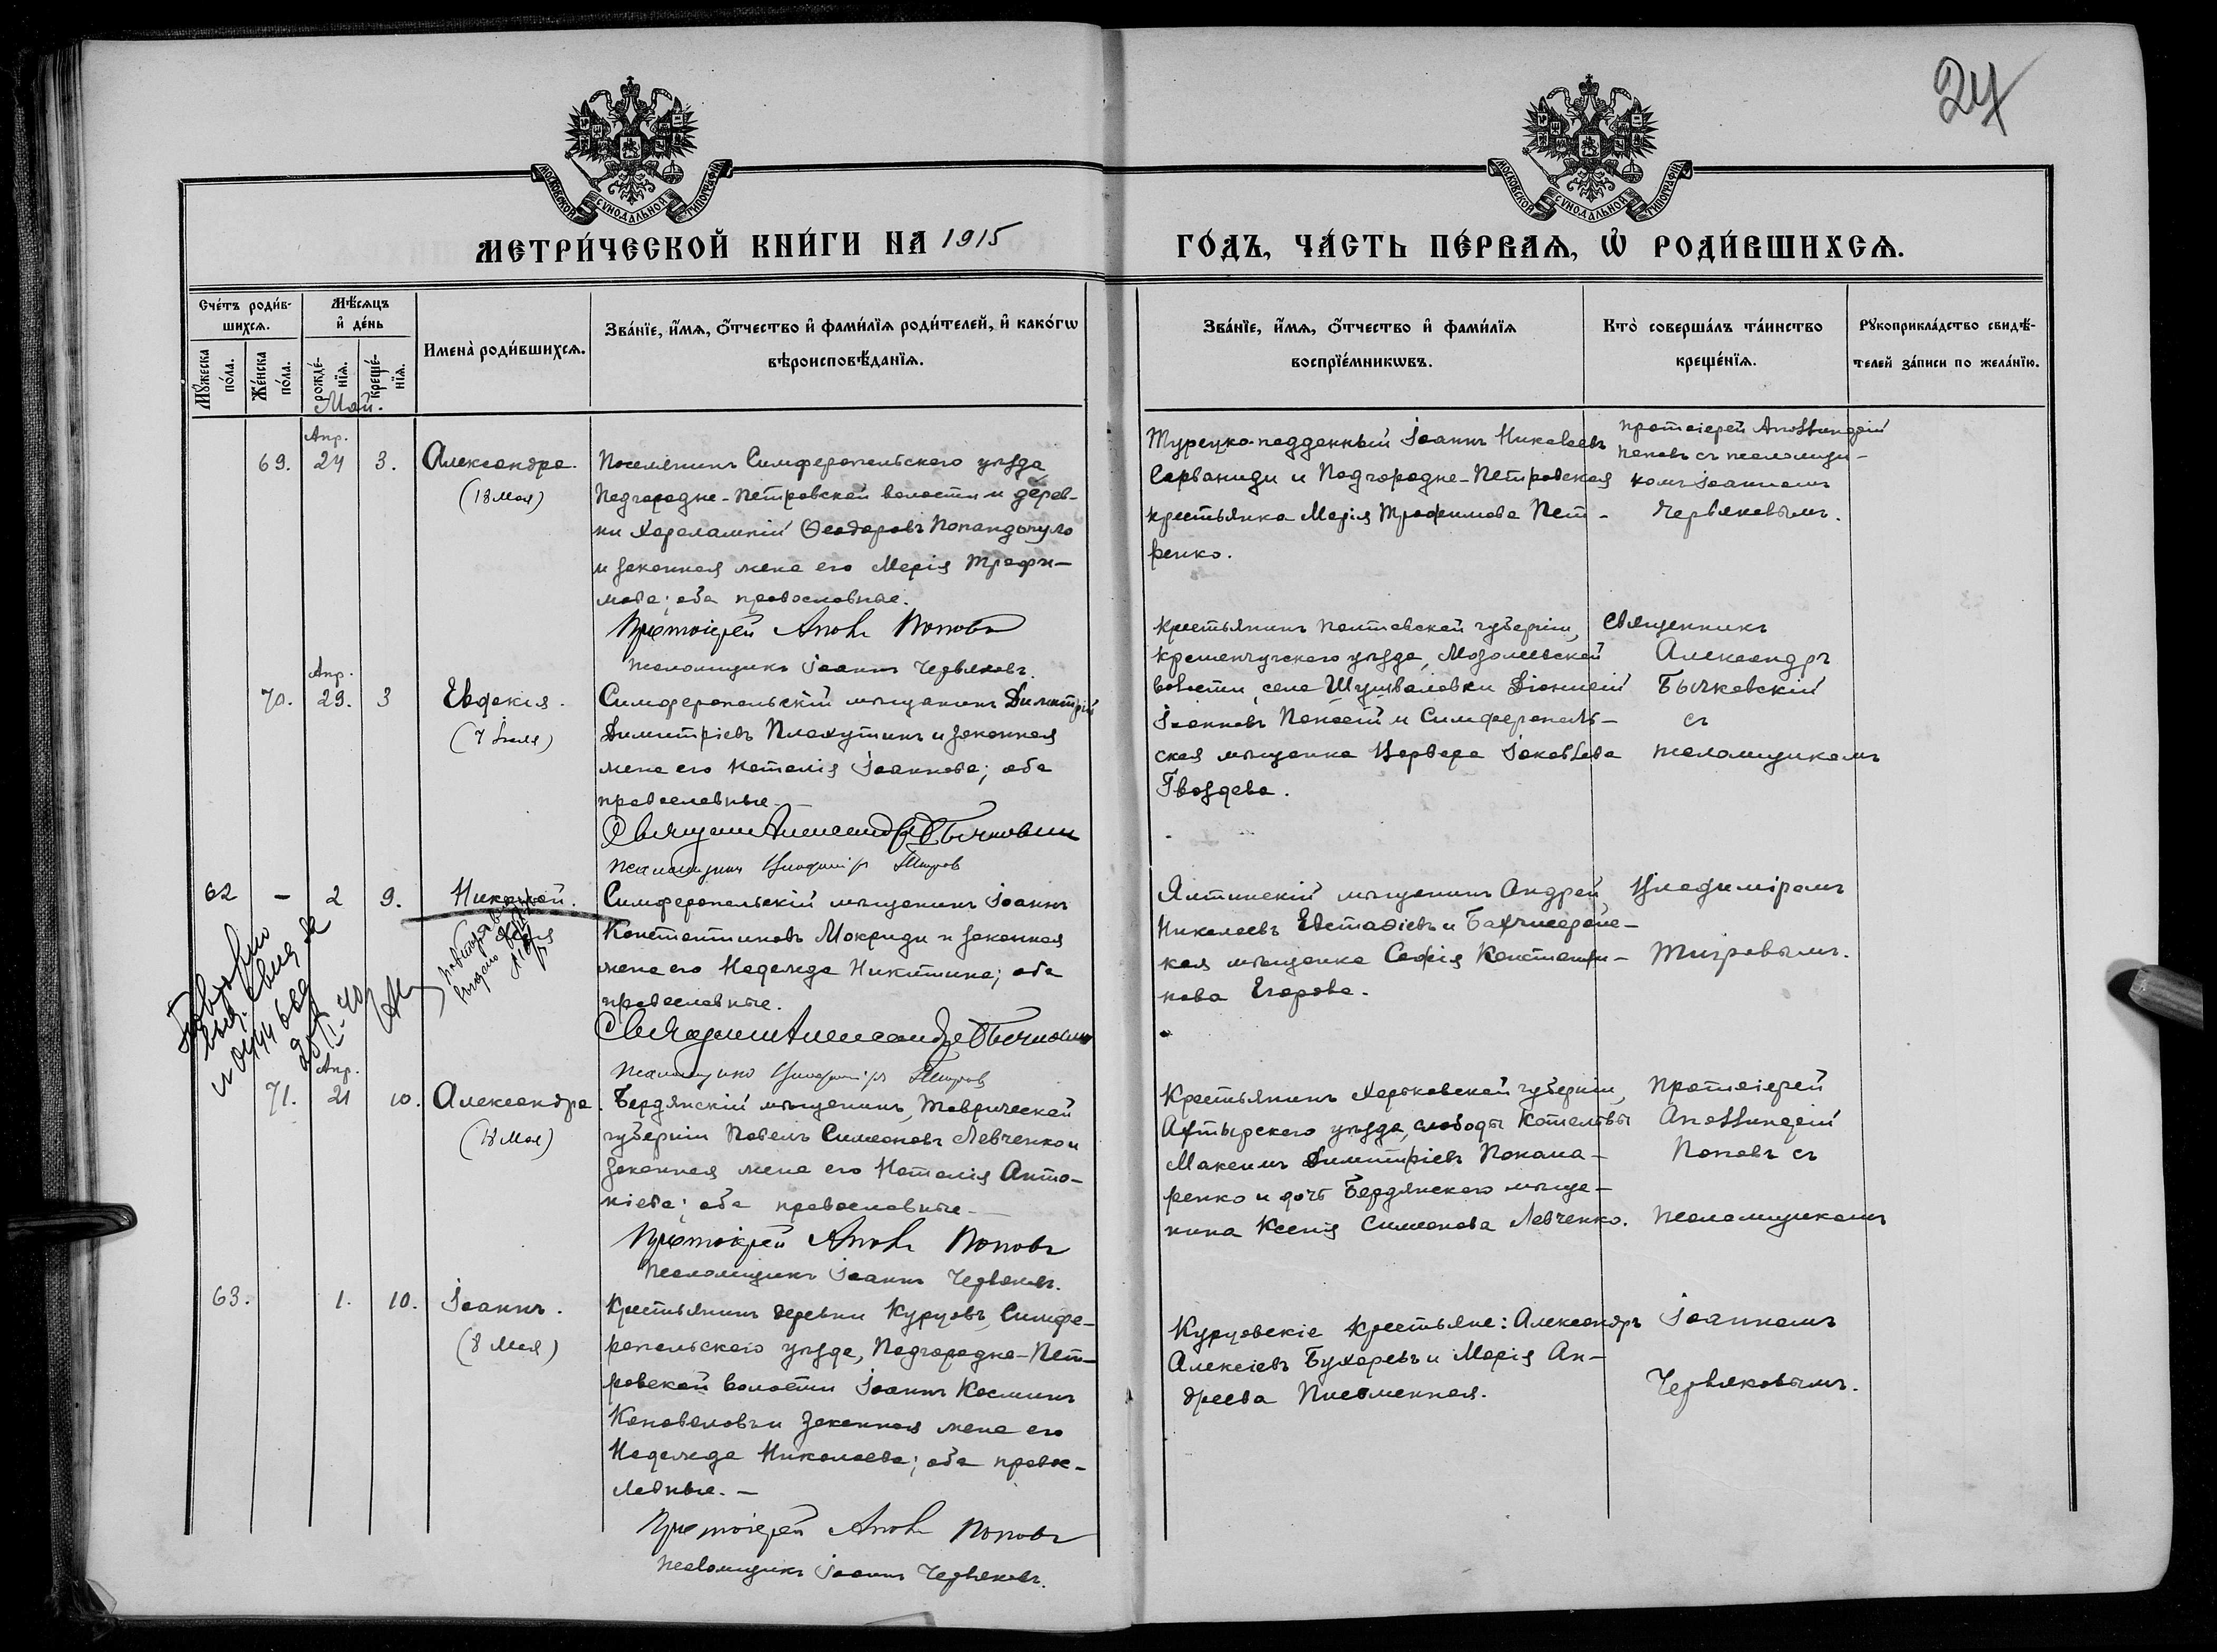 24
МОСКОВСКОЙ СѴНОДАЛЬНОЙ ТИПОГРАФІИ
МОСКОВСКОЙ СѴНОДАЛЬНОЙ ТИПОГРАФІИ
МЕТРИ́ЧЕСКОЙ КНИ́ГИ НА 1915
ГО́ДЪ, ЧА́СТЬ ПЕ́РВАѦ, Ѽ РОДИ́ВШИХСѦ.
Сче́тъ роди́в-
шихсѧ.
Мѣ́сѧцъ
и҆ де́нь
Мꙋ́жеска
по́ла.
Же́нска
по́ла.
рожде́-
нїѧ.
креще́-
нїѧ.
Имена̀ роди́вшихсѧ.
Зва́нїе, и҆́мѧ, ѻ҆́тчество и҆ фами́лїѧ роди́телей, и҆ како́гѡ
вѣроисповѣ́данїѧ.
Зва́нїе, и҆́мѧ, ѻ҆́тчество и҆ фами́лїѧ
воспрїе́мникѡвъ.
Кто̀ соверша́лъ та́инство
креще́нїѧ.
Рꙋкоприкла́дство свидѣ́-
телей за́писи по жела́нїю.
Май.
Апр.
69. 24 3. Александра.
(18 Мая)
Поселянинъ Симферопольскаго уѣзда
Подгородне-Петровской волости и дерев-
ни Харалампій Ѳеодоровъ Попандопуло
и законная жена его Марія Трофи-
мова; оба православные.
Протоіерей Апол. Поповъ
Псаломщикъ Іоаннъ Червяковъ.
Турецко-подданный Іоаннъ Николаевъ
Сарваниди и Подгородне-Петровская
крестьянка Марія Трофимова Пет-
ренко.
Протоіерей Аполлинарій
Поповъ съ псаломщи-
комъ Іоанномъ
Червяковымъ.
Апр.
70. 29. 3 Евдокія.
(7 Іюля)
Симферопольскій мѣщанинъ Димитрій
Димитріевъ Плахутинъ и законная
жена его Наталія Іоаннова; оба
православные.
Священникъ Александръ Бычковскій
Псаломщикъ Владиміръ Тигровъ
Крестьянинъ Полтавской губерніи,
Кременчугскаго уѣзда, Мозолеевской
волости, села Шушваловки Діонисій
Іоанновъ Покасій и Симферополь-
ская мѣщанка Варвара Іаковлева
Гвоздева.
Священникъ
Александръ
Бычковскій
съ
псаломщикомъ
62 – 2 9. Николай.
Симферопольскій мѣщанинъ Іоаннъ
Константиновъ Мокриди и законная
жена его Надежда Никитина; оба
православные.
Священникъ Александръ Бычковскій
Псаломщикъ Владиміръ Тигровъ
Ялтинскій мѣщанинъ Андрей
Николаевъ Евстафіевъ и Бахчисарайс-
кая мѣщанка Софія Константи-
нова Егорова.
Владиміромъ
Тигровымъ.
Апр.
71. 21 10. Александра.
(18 Мая)
Бердянскій мѣщанинъ, Таврической
губерніи Павелъ Симеоновъ Левченко и
законная жена его Наталія Анто-
ніева; оба православные.
Протоіерей Апол. Поповъ
Псаломщикъ Іоаннъ Червяковъ.
Крестьянинъ Харьковской губерніи,
Ахтырскаго уѣзда, слободы Котельвы
Максимъ Димитріевъ Понама-
ренко и дочь Бердянскаго мѣща-
нина Ксенія Симеонова Левченко.
Протоіерей
Аполлинарій
Поповъ съ
псаломщикомъ
63. 1. 10. Іоаннъ.
(8 Мая)
Крестьянинъ деревни Курцовъ, Симфе-
ропольскаго уѣзда, Подгородне-Пет-
ровской волости Іоаннъ Косминъ
Коноваловъ и законная жена его
Надежда Николаева; оба правос-
лавные.
Протоіерей Апол. Поповъ
Псаломщикъ Іоаннъ Червяковъ.
Курцовскіе крестьяне: Александръ
Алексіевъ Бухаревъ и Марія Ан-
дреева Писменная.
Іоанномъ
Червяковымъ.